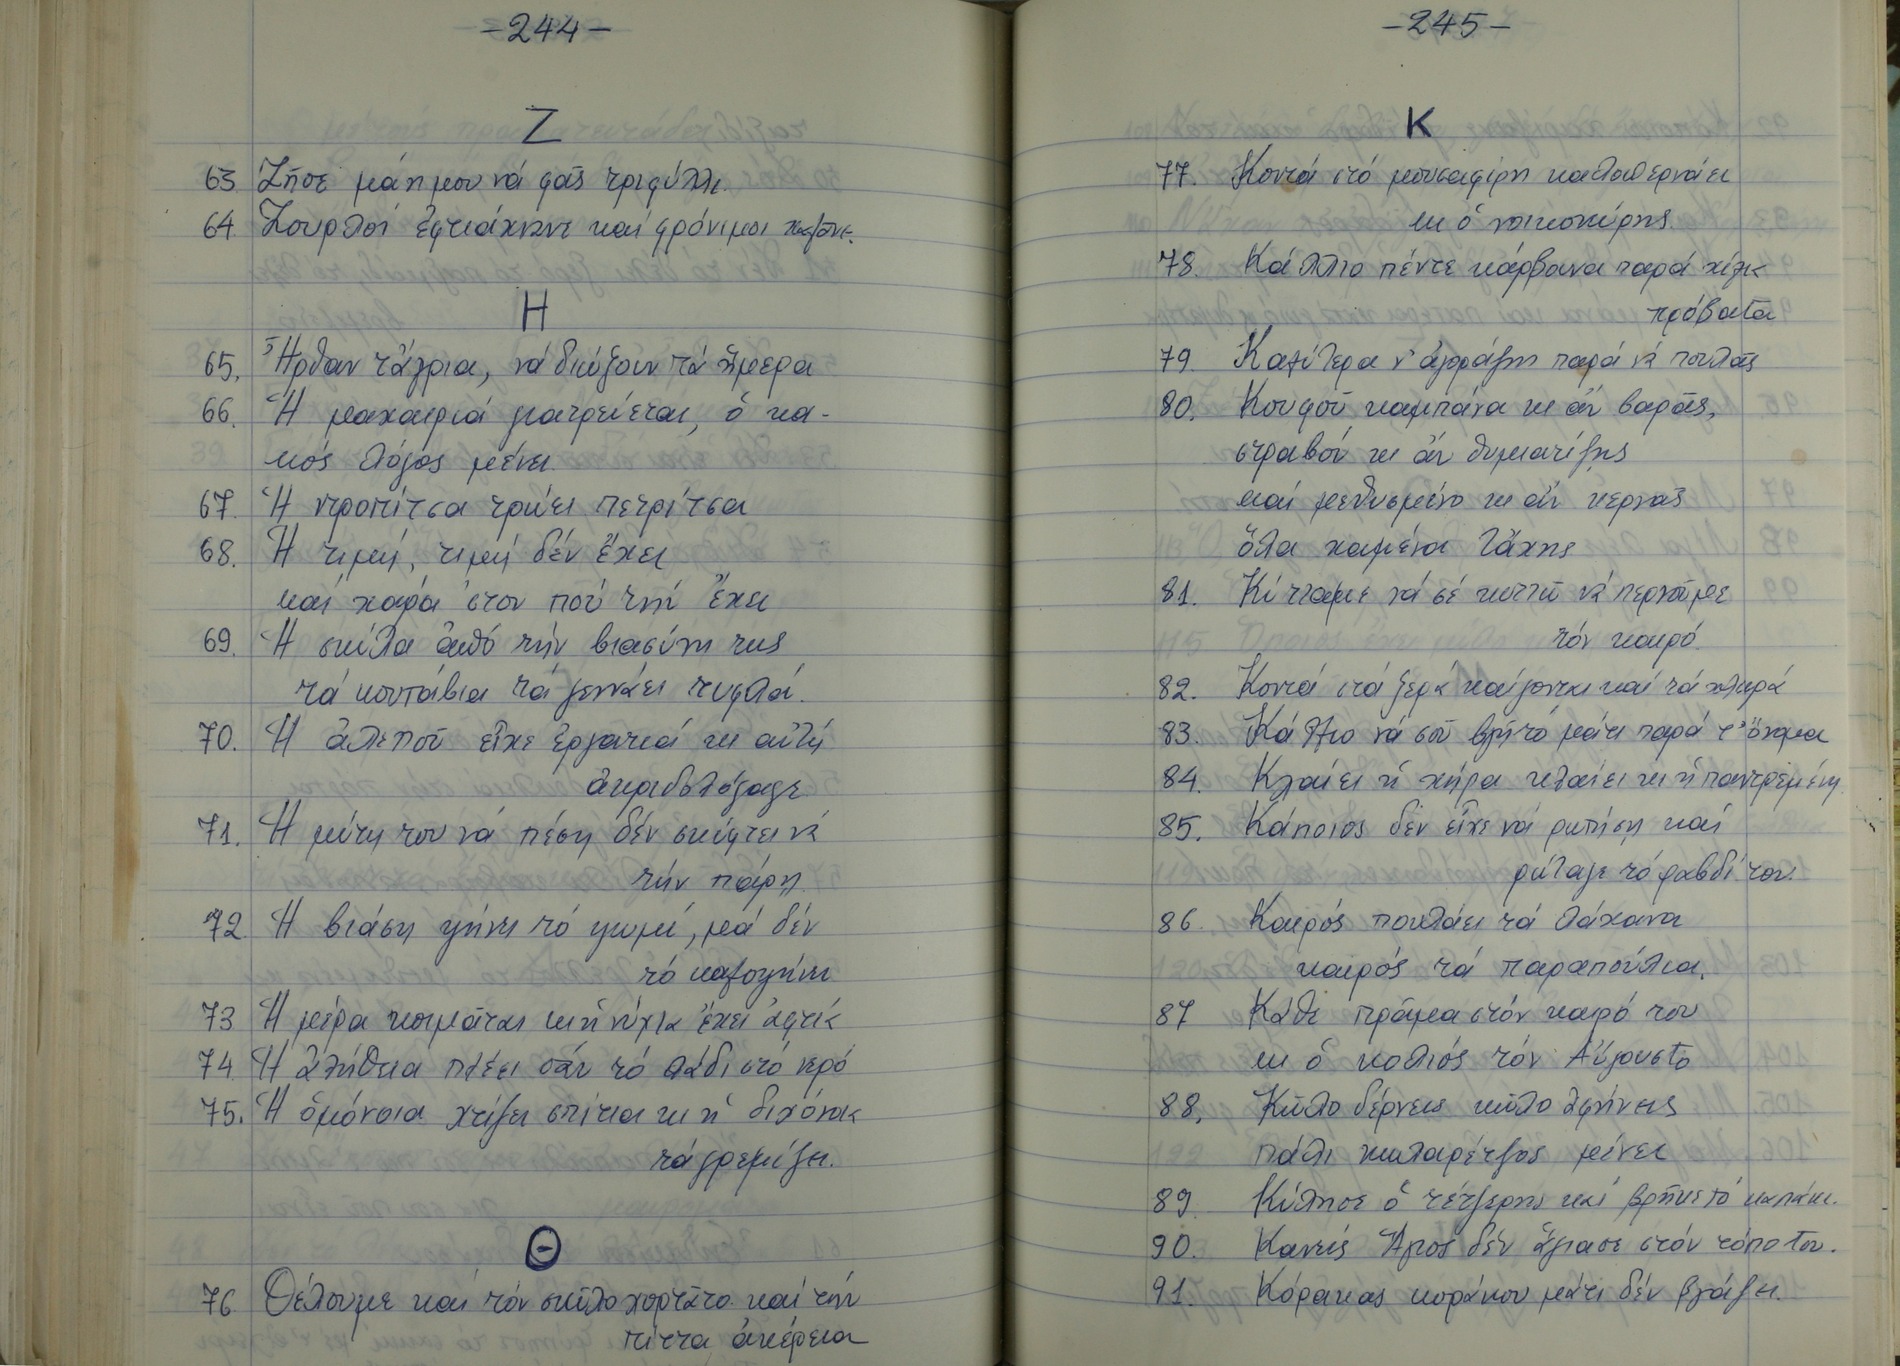 -244-
Ζ
63 Ζῆσε μάη μου νά φᾶς τριφύλλι.
64 Ζουρλοί ἐφτιάχνανε καί φρόνιμοι
Η
65. Ἦρθαν τἄγρια, νά διώξουν τά ἥμερα
66. Ἡ μαχαιριά γιατρεύεται, ὁ κα-
κός λόγος μένει
67. Ἡ ντροπίτσα τρώει πετρίτσα
68. Ἡ τιμή, τιμή δέν ἔχει
καί χαρά στον πού τήν ἔχει
69. Ἡ σκύλα ἀπό τήν βιασύνη της
τά κουτάβια τά γεννάει τυφλά.
70. Ἡ ἀλεποῦ εἶχε ἐργατιά κι αὐτή
ἀκριδολόγαγε
71. Ἡ μύτη του νά πέση δέν σκύφτει νά
τήν πάρη.
72 Ἡ βιάση ψήνει τό ψωμί, μά δέν
τό καλοψήνει
73 Ἡ μέρα κοιμᾶται κι ἡ νύχτα ἔχει ἀφτιά
74 Ἡ ἀλήθεια πλέει σάν τό λάδι στό νερό
75. Ἡ ὁμόνοια χτίζει σπίτια κι ἡ διχόνοια
τά γρεμίζει.
Θ
76 Θέλουμε καί τόν σκύλο χορτᾶτο καί τήν
πίττα ἀκέρεια
-245-
Κ
77. Κοντά στό μουσαφίρη καλοπερνάει
κι ὁ νοικοκύρης.
78. Κάλλιο πέντε κάρβουνα παρά χίλια
πρόβατα
79. Καλύτερα ν' ἀγοράζης παρά νά πουλᾶς
80. Κουφοῦ καμπάνα κι ἄν βαρᾶς,
στραβόν κι ἄν θυμιατίζης
καί μεθυσμένο κι ἄν κερνᾶς
ὅλα χαμένα τἄχης
81. Κύτταμε νά σέ κυττῶ νά περνοῦμε
τόν καιρό.
82. Κοντά στά ξερά καίγονται καί τά χλωρά
83. Κάλλιο νά σοῦ βγῆ τό μάτι παρά τ' ὄνομα
84. Κλαίει ἡ χήρα κλαίει κι ἡ παντρεμένη
85. Κάποιος δέν εἶχε νά ρωτήση καί
ρώταγε τό ραβδί του.
86. Καιρός πουλάει τά λάχανα
καιρός τά παραπούλια.
87 Κάθε πρᾶμα στόν καιρό του
κι ὁ κολιός τόν Αὔγουστο
88. Κῶλο δέρνεις κῶλο ἀφήνεις
πάλι κωλαρέτζος μένει
89. Κύλησε ὁ τέτζερης καί βρῆκε τό καπάκι.
90. Κανείς Ἅγιος δέν ἅγιασε στόν τόπο του.
91. Κόρακας κοράκου μάτι δέν βγάζει.